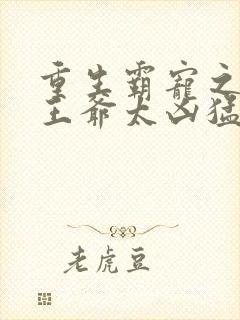 重生霸寵之
王爺太凶猛
老虎豆